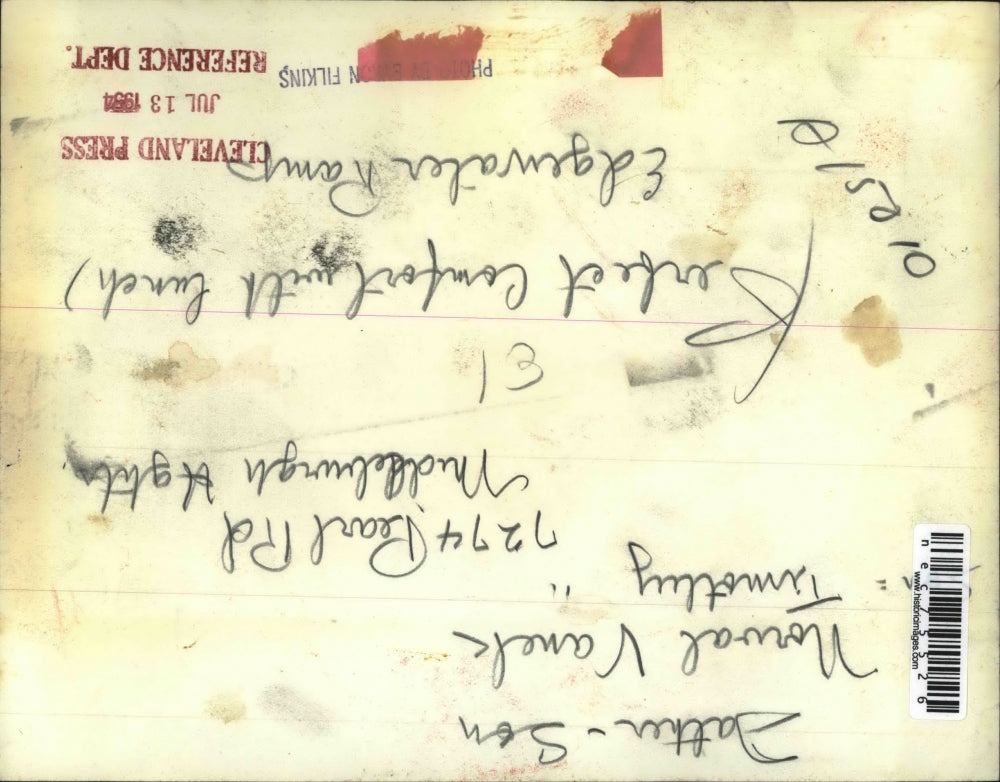 Father - Son
Norval Vanek
Timothy "
7274 Pearl Rd
Middleburgh Hghts
E1
(Perfect Comfort with lunch)
Edgewater Ramp
CLEVELAND PRESS
JUL 13 1954
REFERENCE DEPT.
PHOTO BY FILKINS
www.historicimages.com
nec75526